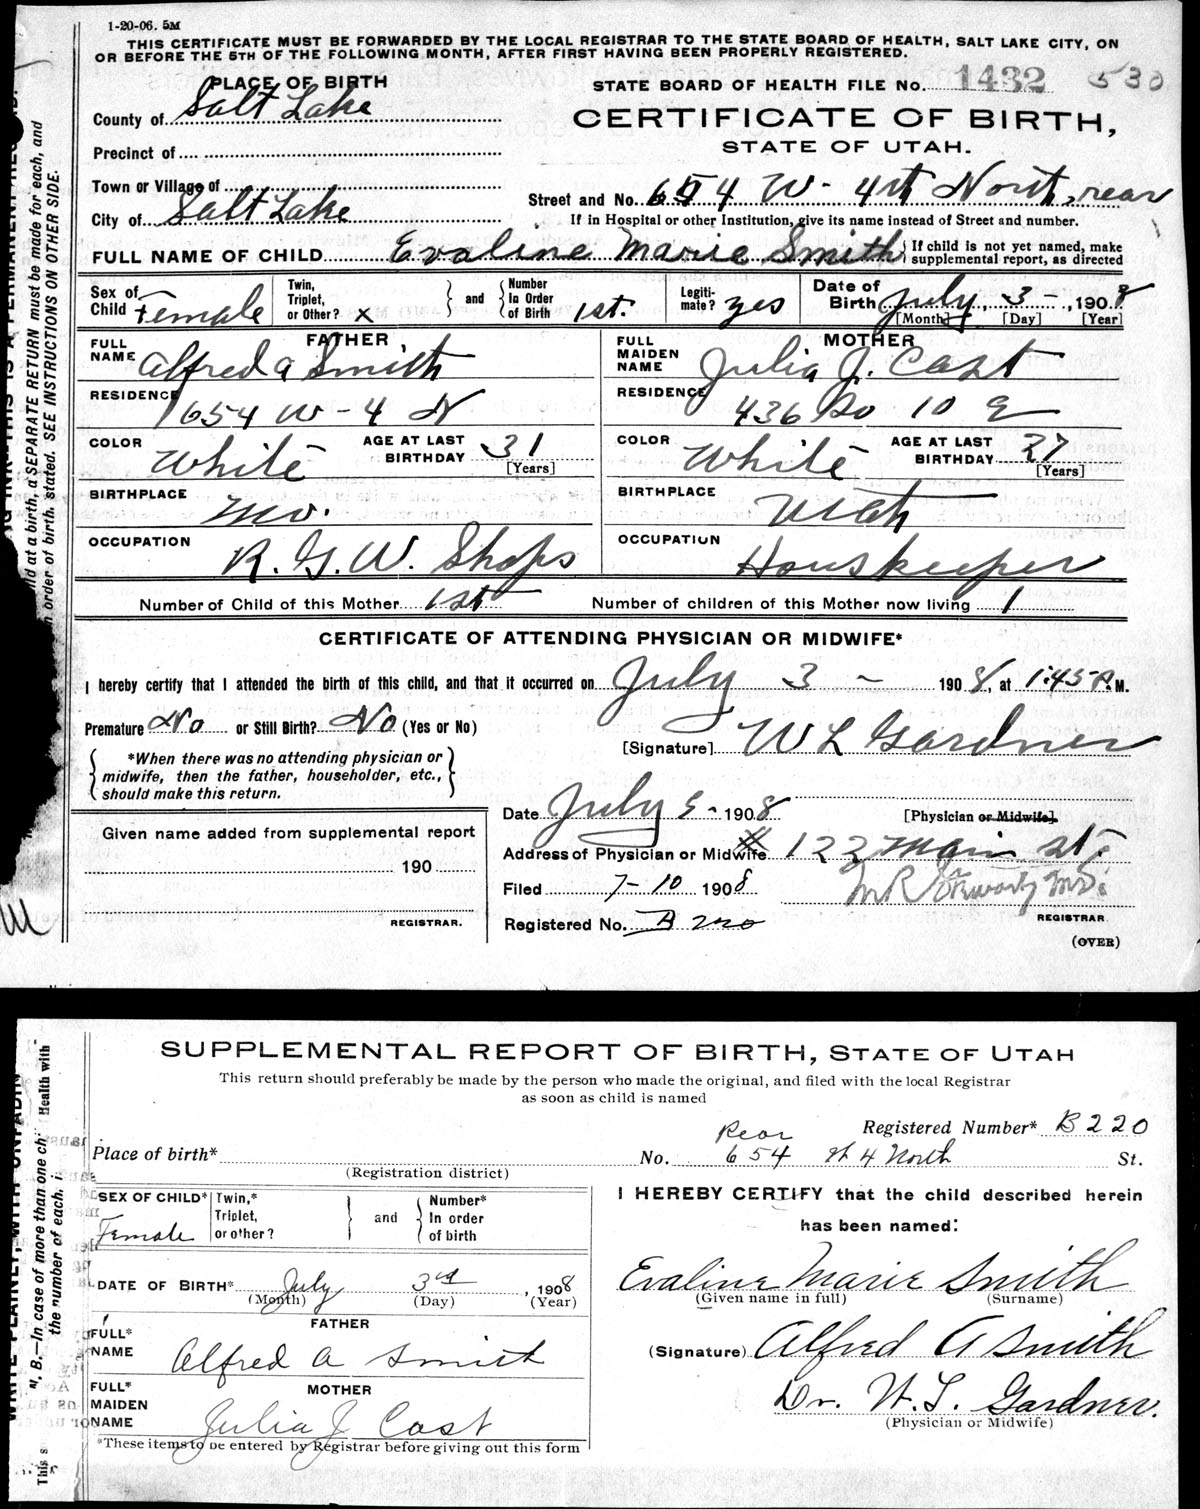 1-20-06. 5M
THIS CERTIFICATE MUST BE FORWARDED BY THE LOCAL REGISTRAR TO THE STATE BOARD OF HEALTH, SALT LAKE CITY, ON
OR BEFORE THE 5TH OF THE FOLLOWING MONTH, AFTER FIRST HAVING BEEN PROPERLY REGISTERED.
PLACE OF BIRTH
STATE BOARD OF HEALTH FILE NO. 1432 530
County of Salt Lake
CERTIFICATE OF BIRTH,
STATE OF UTAH.
Precinct of
Town or Village of
Street and No. 654 W - 4th North, rear
City of Salt Lake
If in Hospital or other Institution, give its name instead of Street and number.
FULL NAME OF CHILD Evaline Marie Smith { If child is not yet named, make supplemental report, as directed
Sex of Child Female Twin, Triplet, or Other? x } and { Number In Order of Birth 1st. Legitimate? yes Date of Birth July 3 - , 1908
[Month] [Day] [Year]
FATHER MOTHER
FULL NAME Alfred A Smith FULL MAIDEN NAME Julia J. Cast
RESIDENCE 654 W - 4 N RESIDENCE 436 So 10 E
COLOR White AGE AT LAST BIRTHDAY 31 [Years] COLOR White AGE AT LAST BIRTHDAY 27 [Years]
BIRTHPLACE Mo. BIRTHPLACE Utah
OCCUPATION R. G. W. Shops OCCUPATION Houskeeper
Number of Child of this Mother 1st Number of children of this Mother now living 1
CERTIFICATE OF ATTENDING PHYSICIAN OR MIDWIFE*
I hereby certify that I attended the birth of this child, and that it occurred on July 3 - 1908, at 1:45 A.M.
Premature No or Still Birth? No (Yes or No)
[Signature] W L Gardner
{ *When there was no attending physician or
midwife, then the father, householder, etc.,
should make this return. }
Date July 5 - 1908 [Physician or Midwife].
Given name added from supplemental report
Address of Physician or Midwife 122 Main St.
190
Filed 7-10 1908
REGISTRAR. Registered No. B 220 REGISTRAR
(OVER)
SUPPLEMENTAL REPORT OF BIRTH, STATE OF UTAH
This return should preferably be made by the person who made the original, and filed with the local Registrar
as soon as child is named
Registered Number* B220
Place of birth* No. Rear 654 W 4 North St.
(Registration district)
SEX OF CHILD* Female Twin,* Triplet, or other? } and { Number* In order of birth
I HEREBY CERTIFY that the child described herein
has been named:
DATE OF BIRTH* July 3rd, 1908
(Month) (Day) (Year)
Evaline Marie Smith
(Given name in full) (Surname)
FATHER
FULL* NAME Alfred A Smith
(Signature) Alfred A Smith
MOTHER
FULL* MAIDEN NAME Julia J Cast
Dr. W. L. Gardner.
(Physician or Midwife)
*These items to be entered by Registrar before giving out this form
ld at a birth, a SEPARATE RETURN must be made for each, and
order of birth stated. SEE INSTRUCTIONS ON OTHER SIDE.
N. B.—In case of more than one ch
the number of each, i
Health with